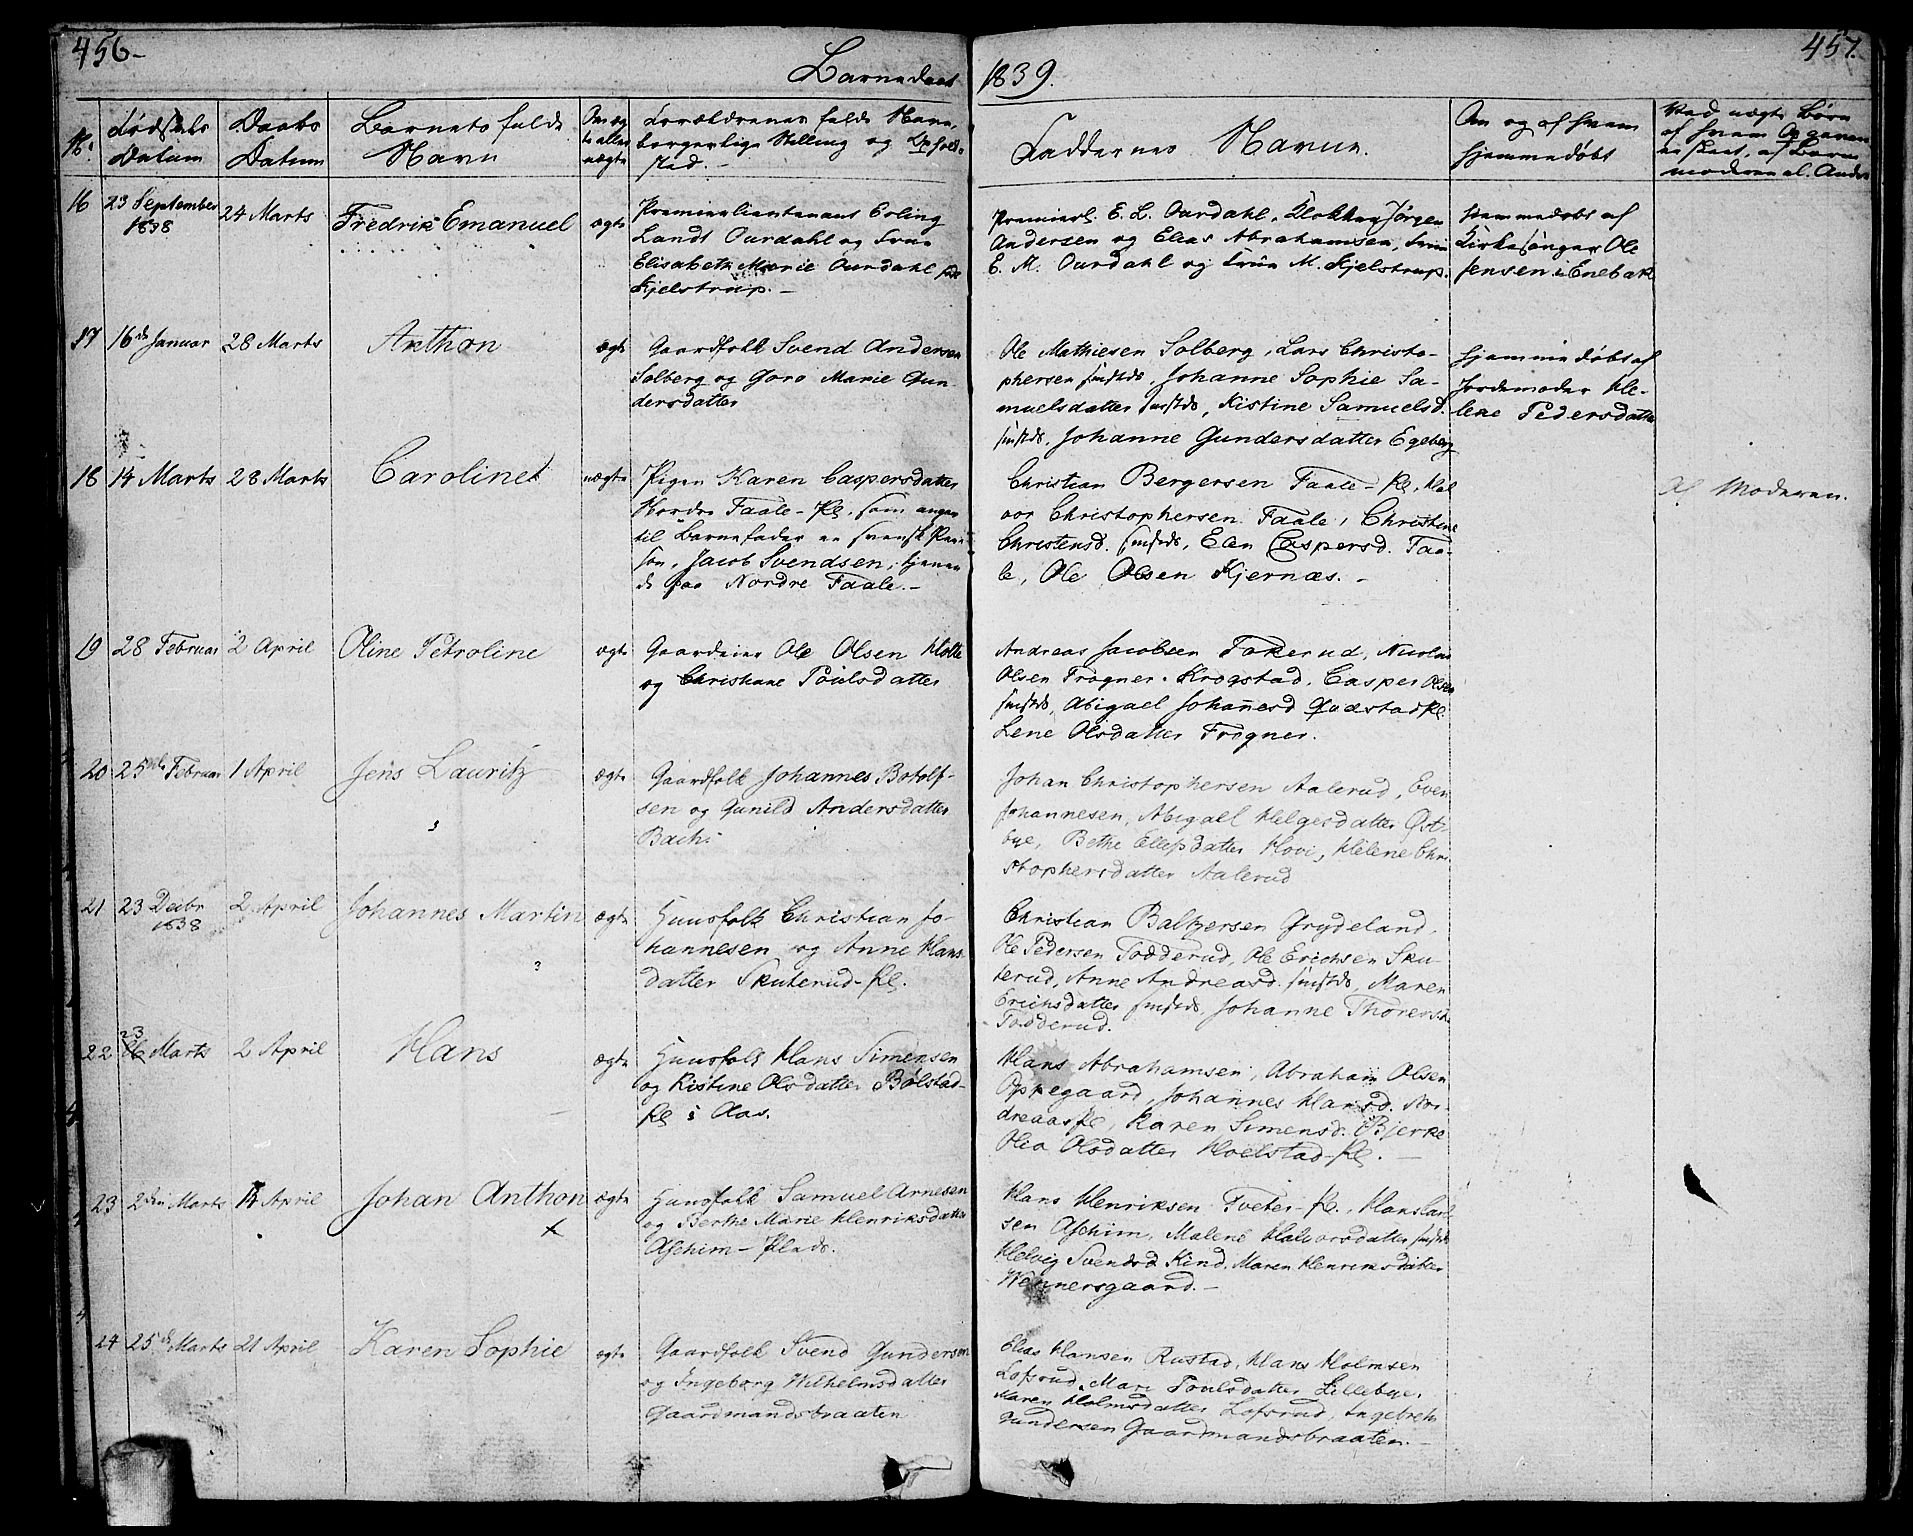 456-
Barnedaab
1839.
457.
No:
Fødsels
Datum
Daabs
Datum
Barnets fulde
Navn
Om æg
te eller
uægte
Forældrenes fulde Navn,
borgerlige Stilling og Opholds
sted. -
Faddernes Navne.
Om og af hvem
hjemmedøbt
Ved uægte Børn
af hvem Opgaven
er skeet, af Barne
moderen el. Andre
16
23 September
1838
24 Marts
Fredrik Emanuel
ægte
Premierlieutenant Erling
Landt Ourdahl og Frue
Elisabeth Marie Ourdahl fød
Kjelstrup. -
Premierl. E. L. Ourdahl, Klokker Jørgen
Andersen og Elias Abrahamsen, Frue
E. M. Ourdahl og Frue M. Kjelstrup.
Hjemmedøbt af
Kirkesanger Ole
Jensen i Enebak
17
16de Januar
28 Marts
Anthon
ægte
Gaardfolk Svend Andersen
Solberg og Goro Marie Gun-
dersdatter
Ole Mathiesen Solberg, Lars Christo-
phersen sammested, Johanne Sophie Sa-
muelsdatter sammested, Kistine Samuelsd.
sammested, Johanne Gundersdatter Egeberg
hjemmedøbt af
Jordemoder He-
lene Pedersdatter
18
14 Marts
28 Marts
Caroline
uægte
Pigen Karen Caspersdatter
Nordre Faale-Pl. som angav
til Barnefader en svensk Per-
son, Jacob Svendsen, tjenen
de paa Nordre Faale. -
Christian Bergersen Faale-Pl, Hal
vor Christophersen Faale, Christine
Christensd. sammested, Elen Caspersd. Faa-
le, Ole Olsen Kjernæs. -
Af Moderen.
19
28 Februar
2 April
Oline Petroline
ægte
Gaardeier Ole Olsen Holte
og Christiane Poulsdatter
Andreas Jacobsen Fokerud, Nicolai
Olsen Frogner-Krogstad, Casper Olsen
sammested, Abigael Johannesd Qvæstadpl.
Lene Olsdatter Frogner.
20
25de Februar
1 April
Jens Lauritz
ægte
Gaardfolk Johannes Botolf-
sen og Gunild Andersdatter
Bach.
Johan Christophersen Aalerud, Even
Johannesen, Abigael Helgesdatter Øst-
bye, Bethe Ellefsdatter Hovi, Helene Chri
stophersdatter Aalerud
21
23 Decbr
1838
2 April
Johannes Martin
ægte
Huusfolk Christian Jo-
hannesen og Anne Hans-
datter Skuterud-Pl.
Christian Baltzersen Grydeland,
Ole Pedersen Todderud, Ole Erichsen Sku-
terud, Anne Andreasd. sammested, Maren
Erichsdatter sammested, Johanne Thorersd.
Todderud.
22
23 Marts
2 April
Hans
ægte
Huusfolk Hans Simensen
og Kistine Olsdatter Bølstad-
Pl i Aas.
Hans Abrahamsen, Abraham Olsen
Oppegaard, Johannes Hansd. Nor-
dreaaspl, Karen Simensd. Bjerke
Olea Olsdatter Hoelstad-Pl. -
23
2den Marts
14 April
Johan Anthon
ægte
Huusfolk Samuel Arnesen
og Berthe Marie Henriksdatter
Aschim-Plads.
Hans Henriksen Tveter-Pl., Hans Lar
sen Aschim, Malene Halvorsdatter sammested
Helvig Svendsd Kind, Maren Henriksdatter
Wennersgaard. -
24
25de Marts
21 April
Karen Sophie
ægte
Gaardfolk Svend Gundersen
og Ingeborg Wilhelmsdatter
Gaardmandsbraaten
Elias Hansen Rustad, Hans Holmsen
Lofsrud, Mari Poulsdatter Lillebye,
Maren Holmsdatter Lofsrud, Ingebreth
Gundersen Gaardmandsbraaten. -